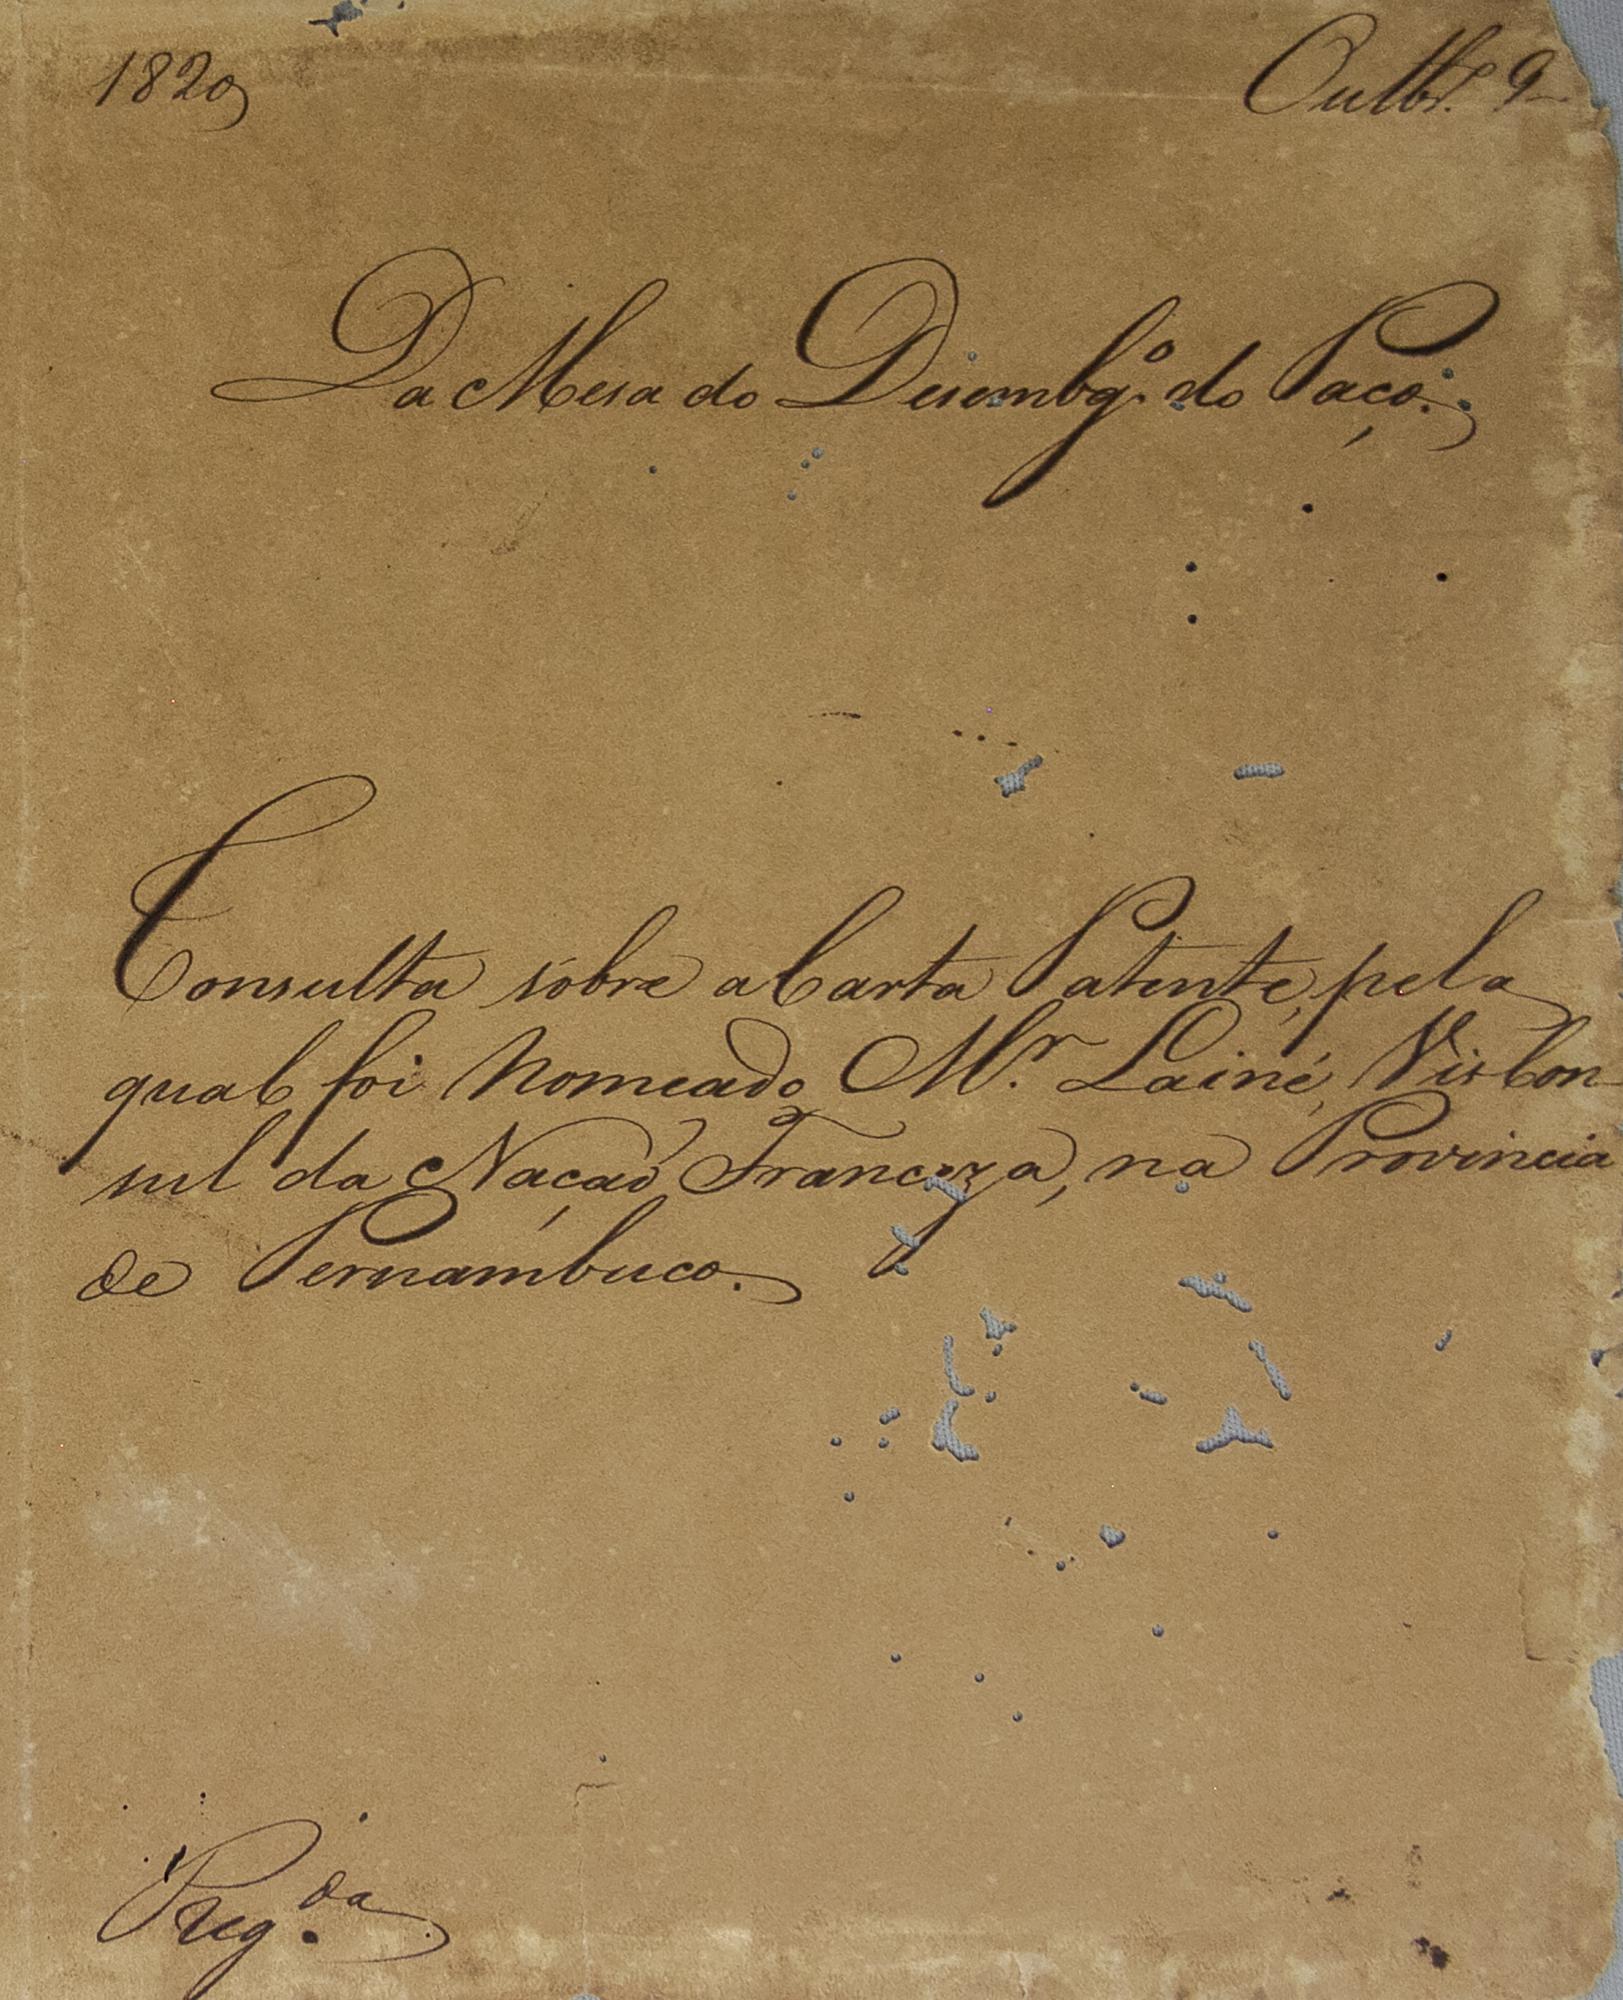 1820
Outbr.º 9
Da Mesa do Desembg.º do Paço.
Consulta sobre a Carta Patente, pela
qual foi Nomeado Mr. Lainé, Vis Con-
sul da Nação Franceza, na Provincia
de Pernambuco.
Reg.da